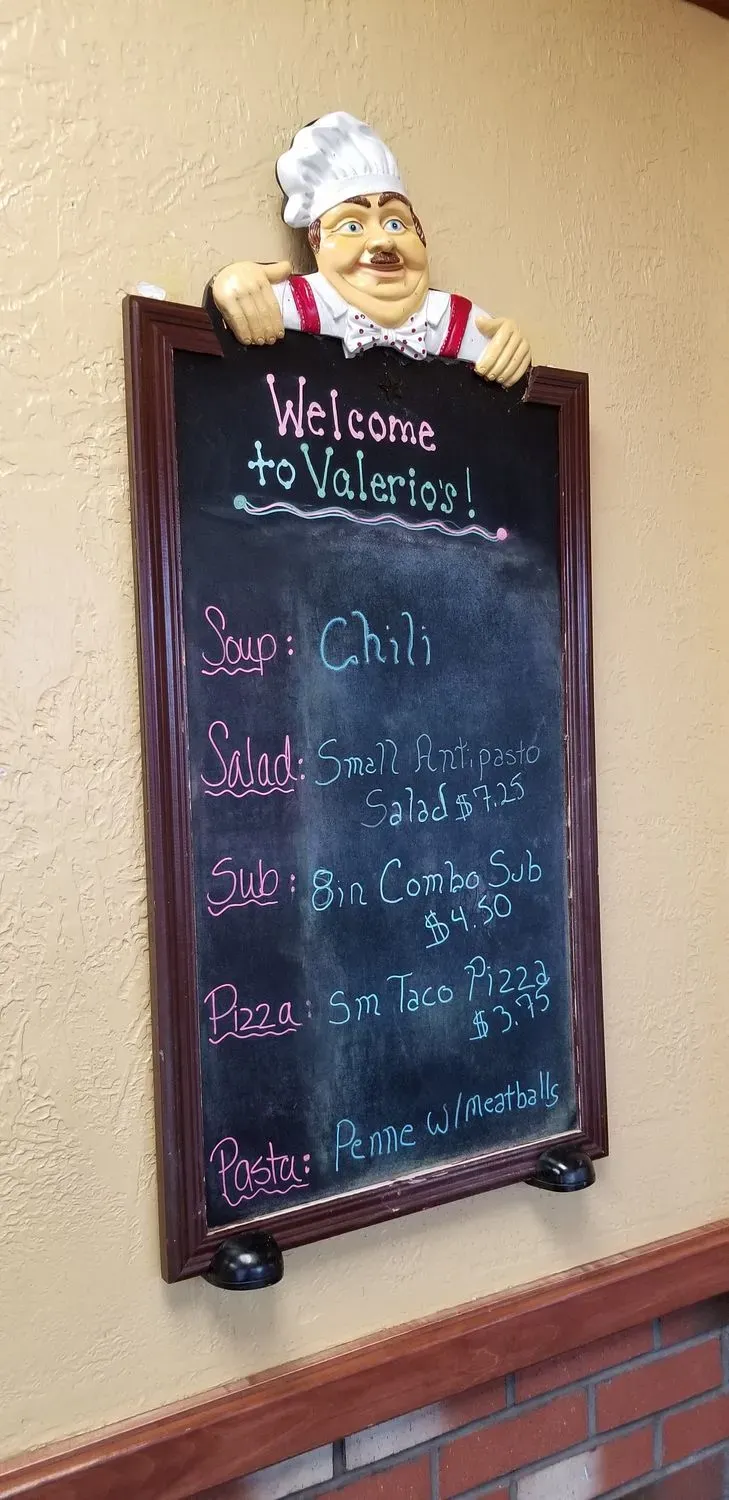 Welcome
to Valerio's!
Soup: Chili
Salad: Small Antipasto
Salad $7.25
Sub: 8in Combo Sub
$4.50
Pizza: Sm Taco Pizza
$3.75
Pasta: Penne w/meatballs